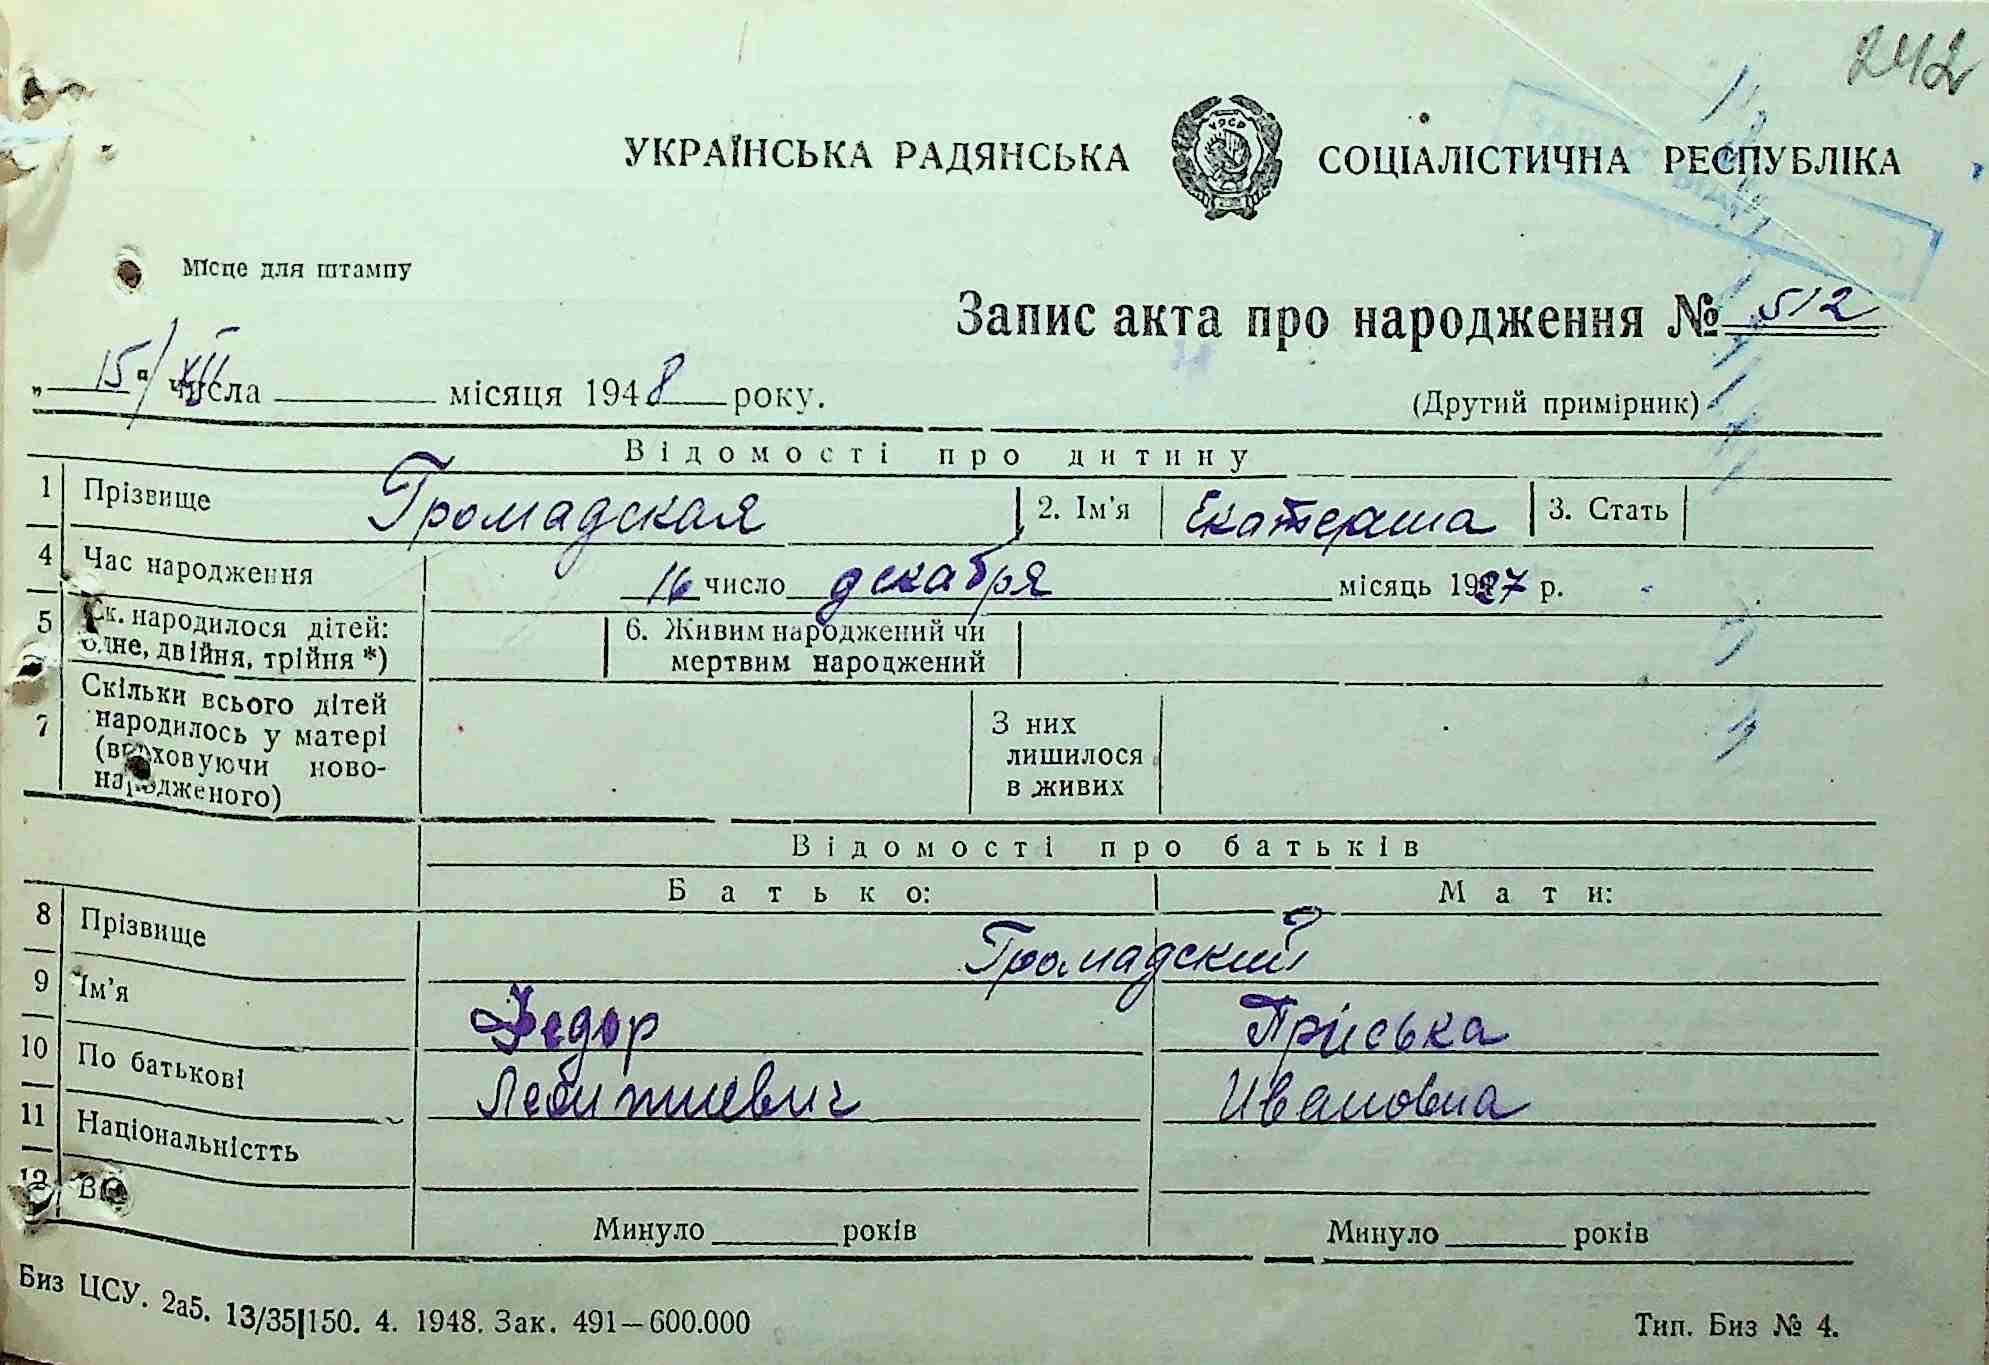 242
УКРАЇНСЬКА РАДЯНСЬКА СОЦІАЛІСТИЧНА РЕСПУБЛІКА
УРСР
Місце для штампу
Запис акта про народження № 512
„ 15 " / XII числа місяця 1948 року.
(Другий примірник)
Відомості про дитину
1 Прізвище Громадская 2. Ім'я Екатерина 3. Стать
4 Час народження 16 число декабря місяць 1927 р.
5 Ск. народилося дітей: 6. Живим народжений чи
одне, двійня, трійня *) мертвим народжений
Скільки всього дітей
7 народилось у матері З них
(враховуючи ново- лишилося
народженого) в живих
Відомості про батьків
Батько: Мати:
8 Прізвище Громадский
9 Ім'я Федор Приська
10 По батькові Ивановна
11 Національністть
12 Вік
Минуло років Минуло років
Биз ЦСУ. 2а5. 13/35|150. 4. 1948. Зак. 491—600.000 Тип. Биз № 4.